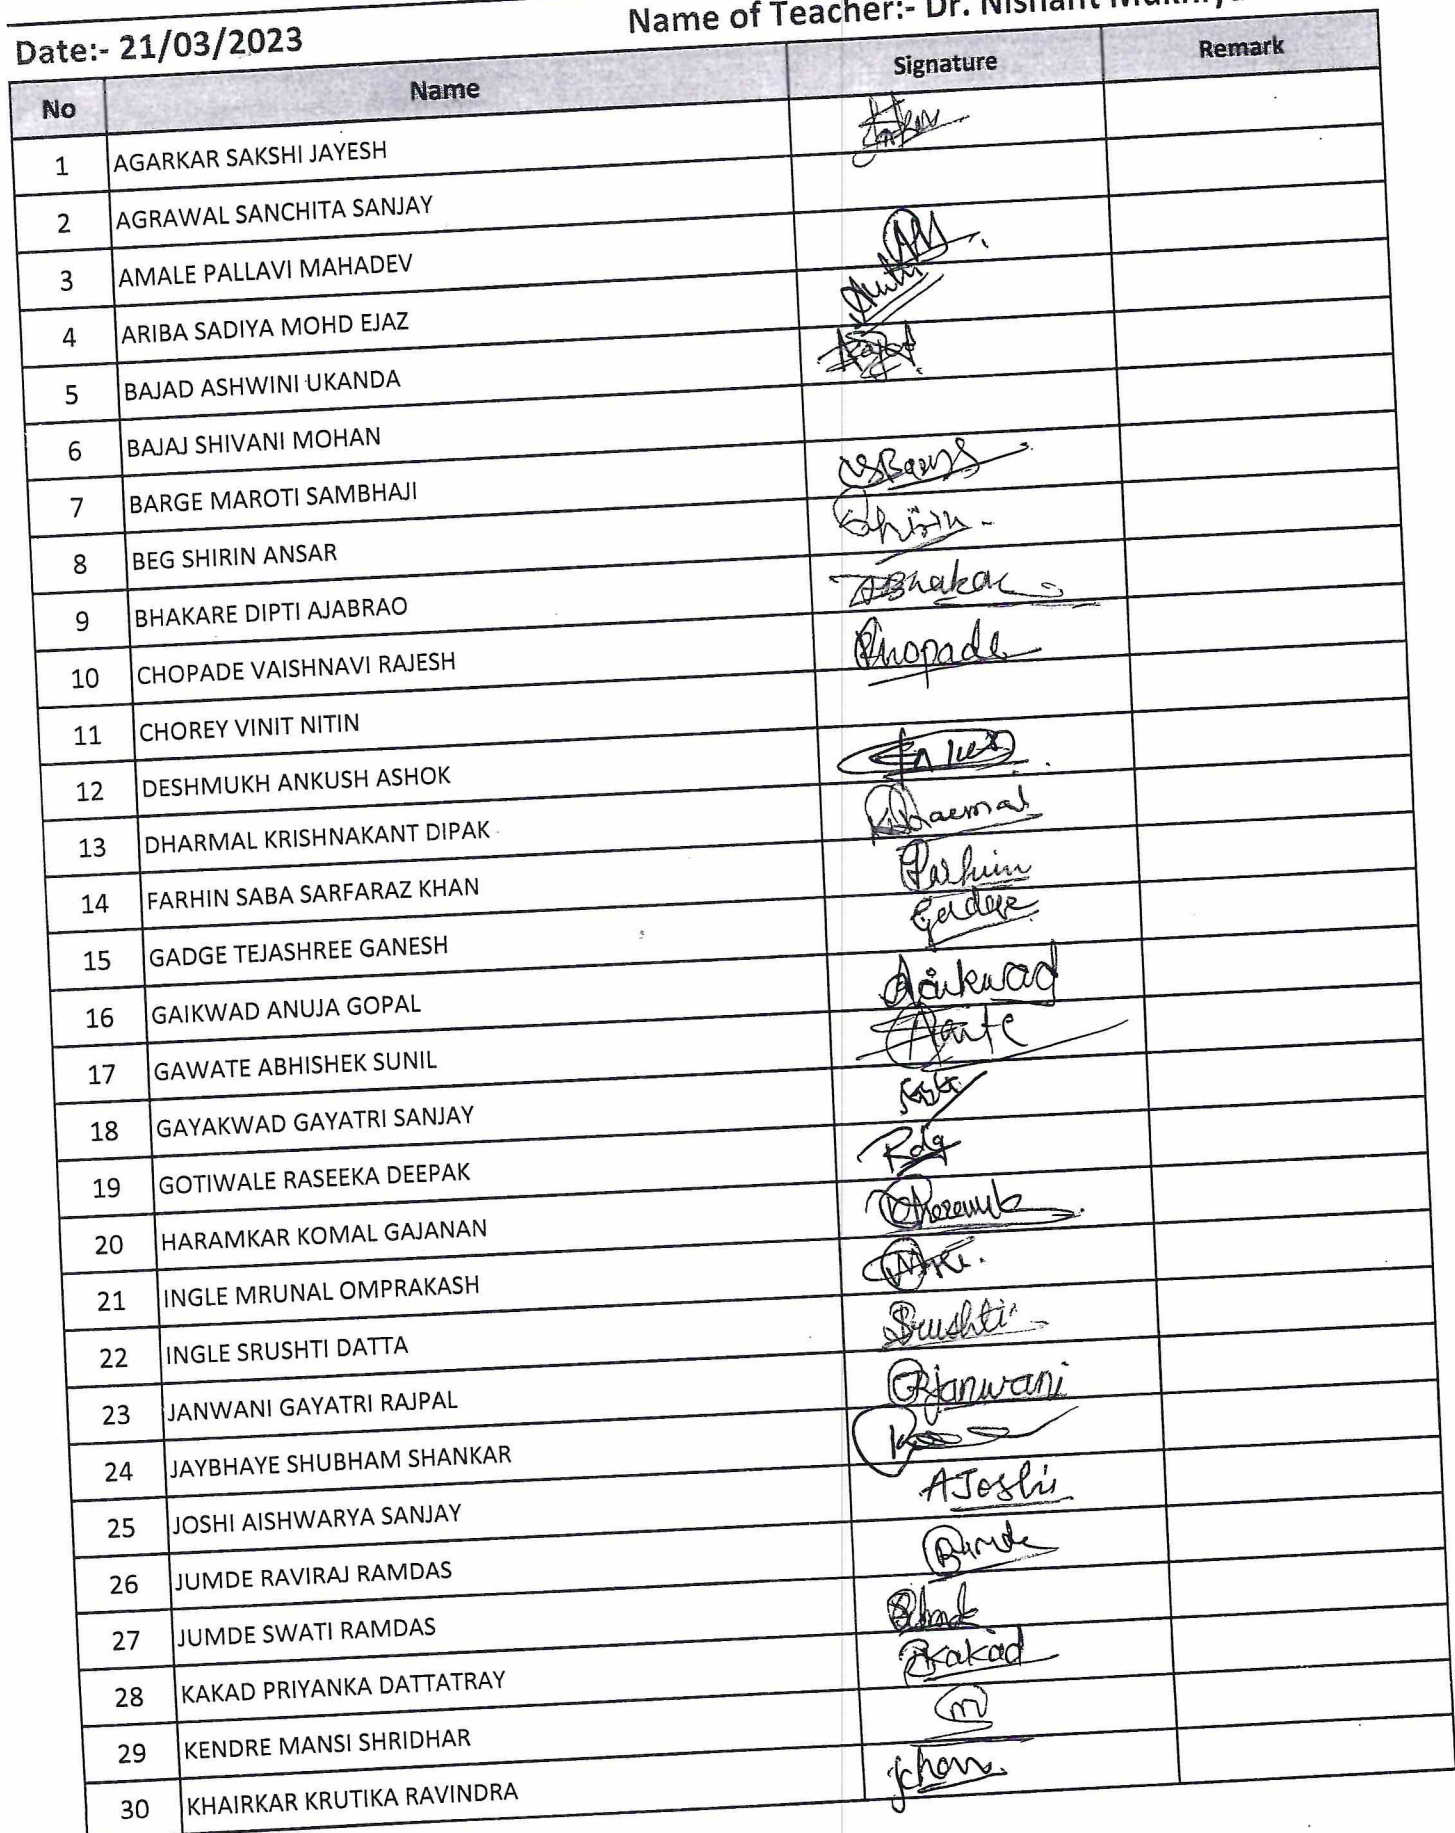 Name of Teacher:- Dr. Nishant
Date:- 21/03/2023
No Name Signature Remark
1 AGARKAR SAKSHI JAYESH
2 AGRAWAL SANCHITA SANJAY
3 AMALE PALLAVI MAHADEV
4 ARIBA SADIYA MOHD EJAZ
5 BAJAD ASHWINI UKANDA
6 BAJAJ SHIVANI MOHAN
7 BARGE MAROTI SAMBHAJI
8 BEG SHIRIN ANSAR Shirin
9 BHAKARE DIPTI AJABRAO
10 CHOPADE VAISHNAVI RAJESH Chopade
11 CHOREY VINIT NITIN
12 DESHMUKH ANKUSH ASHOK
13 DHARMAL KRISHNAKANT DIPAK
14 FARHIN SABA SARFARAZ KHAN Farhin
15 GADGE TEJASHREE GANESH Gadge
16 GAIKWAD ANUJA GOPAL Gaikwad
17 GAWATE ABHISHEK SUNIL
18 GAYAKWAD GAYATRI SANJAY
19 GOTIWALE RASEEKA DEEPAK Rdg
20 HARAMKAR KOMAL GAJANAN
21 INGLE MRUNAL OMPRAKASH
22 INGLE SRUSHTI DATTA Srushti
23 JANWANI GAYATRI RAJPAL GRjanwani
24 JAYBHAYE SHUBHAM SHANKAR
25 JOSHI AISHWARYA SANJAY AJoshi
26 JUMDE RAVIRAJ RAMDAS
27 JUMDE SWATI RAMDAS
28 KAKAD PRIYANKA DATTATRAY PKakad
29 KENDRE MANSI SHRIDHAR m
30 KHAIRKAR KRUTIKA RAVINDRA